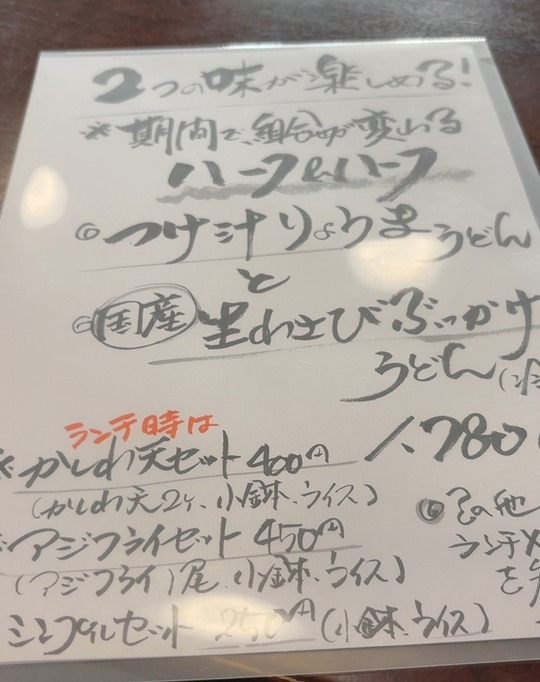 2つの味が楽しめる!
※期間で、組合せが変わる
ハーフ&ハーフ
◎つけ汁りょうまうどん
と
◎国産生わさびぶっかけ
うどん(冷
1,780
ランチ時は
※かしわ天セット 400円
(かしわ天2ヶ、小鉢、ライス)
アジフライセット 450円
(アジフライ1尾、小鉢、ライス)
シンプルセット 250円(小鉢、ライス)
◎その他
ランチメ
を